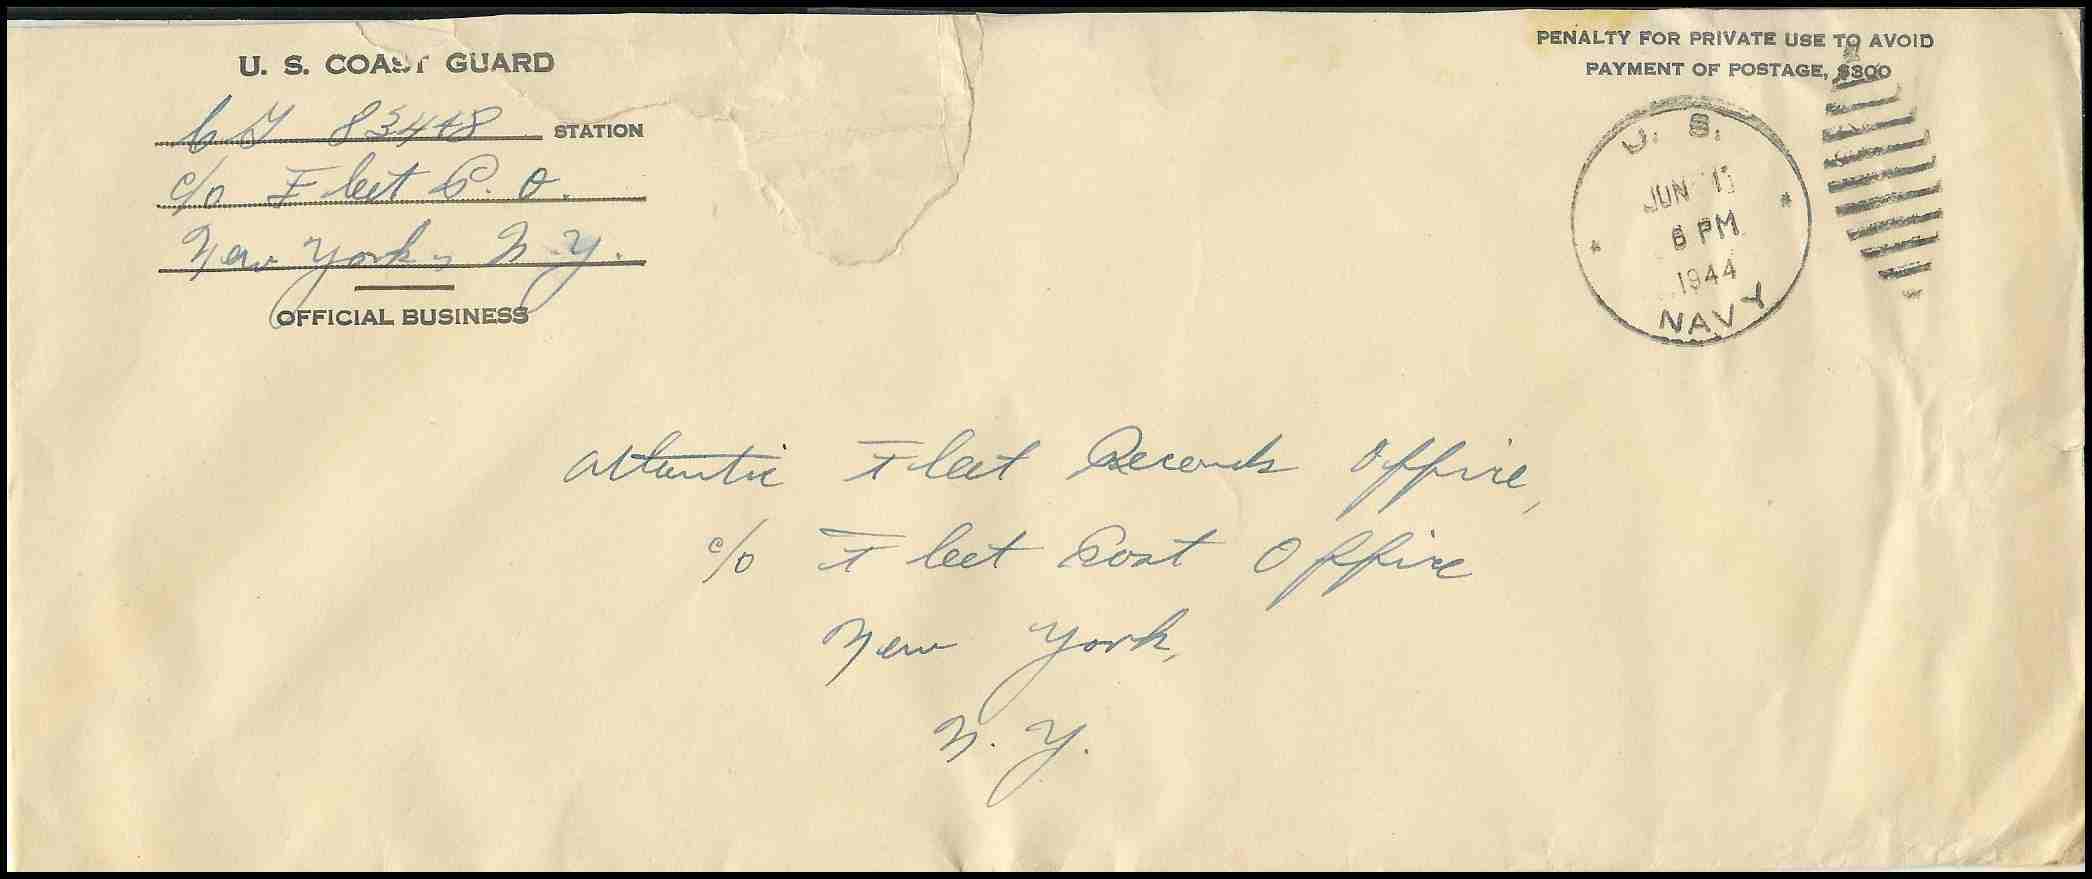 U. S. COAST GUARD
CG 83448 STATION
c/o Fleet P. O.
New York, N.Y.
OFFICIAL BUSINESS
PENALTY FOR PRIVATE USE TO AVOID
PAYMENT OF POSTAGE, $300
U. S.
JUN
6 PM
1944
NAVY
Atlantic Fleet Records Office,
c/o Fleet Post Office
New York,
N. Y.